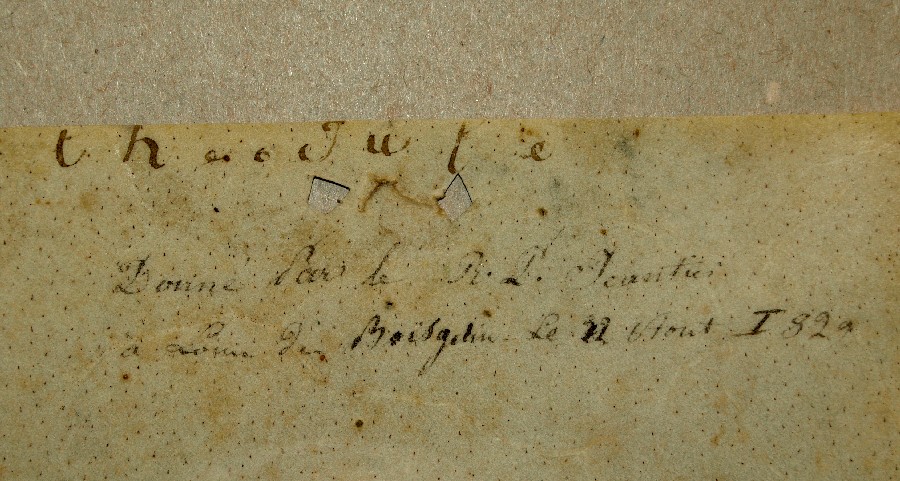 theodufe
Donné Par le R. P. Jeantier
à Louis du Boisgelin Le 22 Aout 1829